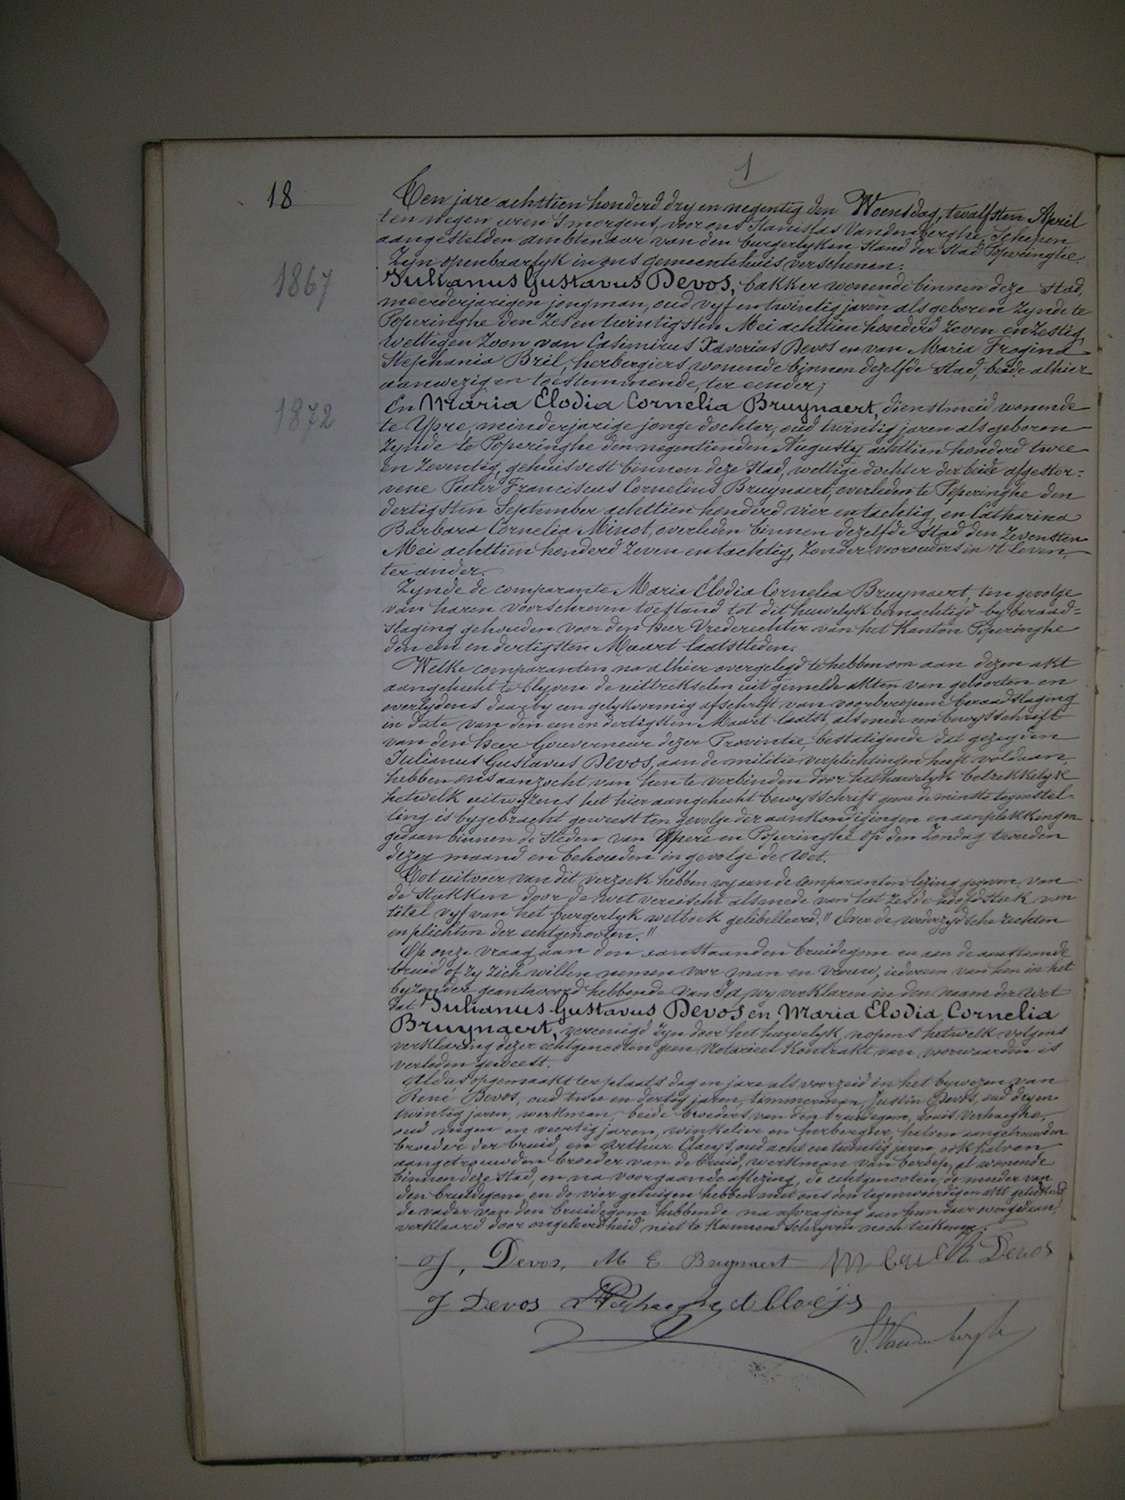 1
18
Ten jare achttien honderd dry en negentig den Woensdag, twalfsten April
ten negen uren 's morgens, voor ons Stanislas Vandenberghe, Schepen
aangestelden ambtenaar van den burgerlyken stand der stad Poperinghe,
zyn openbaarlyk in ons gemeentehuis verschenen:
1867
Julianus Gustavus Devos, bakker wonende binnen deze stad,
meerderjarigen jongman, oud vyf en twintig jaren als geboren zynde te
Poperinghe den zes en twintigsten Mei achttien honderd zeven en zestig,
wettigen zoon van Casimirus Xaverius Devos en van Maria
Stephania Bril, herbergiers wonende binnen dezelfde stad, beide alhier
aanwezig en toestemmende, ter eender;
1872
En Maria Elodia Cornelia Bruynaert, dienstmeid, wonende
te Ypre, minderjarige jonge dochter, oud twintig jaren als geboren
zynde te Poperinghe den negentienden Augusty achttien honderd twee
en zeventig, gehuisvest binnen deze stad, wettige dochter der beide afgestor-
vene Pieter Franciscus Cornelius Bruynaert, overleden te Poperinghe den
dertigsten September achttien honderd vier en tachtig, en Catharina
Barbara Cornelia Minot, overleden binnen dezelfde stad den zevensten
Mei achttien honderd zeven en tachtig, zonder voorouders in 't leven,
ter ander.
Zynde de comparante Maria Elodia Cornelia Bruynaert, ten gevolge
van haren voorschreven toestand tot dit huwelyk bemachtigd by beraad=
slaging gehouden voor den heer Vrederechter van het Kanton Poperinghe
den een en dertigsten Maart laatstleden.
Welke comparanten na alhier overgelegd te hebben om aan dezen akt
aangehecht te blyven de uittrekselen uit gemelde akten van geboorten en
overlydens daarby een gelykvormig afschrift van voorberoepene beraadslaging
in date van den een en dertigsten Maart laatst alsmede een bewysschrift
van den heer Gouverneur dezer Provintie, bestatigende dat gezegden
Julianus Gustavus Devos, aan de militie verplichtingen heeft voldaan,
hebben ons aanzocht van hen te verbinden door het huwelyk betrekkelyk
hetwelk uitwyzens het hier aangehecht bewysschrift geene de minste tegenstel-
ling is bygebracht geweest ten gevolge der aankondigingen en aanplakkingen
gedaan binnen de steden van Ypere en Poperinghe op den zondag tweeden
dezer maand en behouden in gevolge de wet.
Tot uitvoer van dit verzoek hebben wy aan de comparanten lezing gegeven van
de stukken door de wet vereischt alsmede van het zesde hoofdstuk van
titel vyf van het burgerlyk wetboek gelibelleerd: "Over de wederzydsche rechten
en plichten der echtgenooten."
Op onze vraag aan den aanstaanden bruidegom en aan de aanstaande
bruid of zy zich willen nemen voor man en vrouw, iedereen van hen in het
byzonder geantwoord hebbende van Ja, wy verklaren in den naam der wet
dat Julianus Gustavus Devos en Maria Elodia Cornelia
Bruynaert, vereenigd zyn door het huwelyk, nopens hetwelk volgens
verklaring dezer echtgenooten geen Notarieel Kontrakt van voorwaarden is
verleden geweest.
Aldus opgemaakt ter plaats dag en jare als voorzeid in het bywezen van
René Devos, oud twee en dertig jaren, timmerman, Justin Devos, oud dry en
twintig jaren, werkman, beide broeders van den bruidegom, Louis Verhaeghe,
oud negen en veertig jaren, winkelier en herbergier, halven aangetrouwden
broeder der bruid, en Arthur Claeys, oud acht en twintig jaren, ook halven
aangetrouwden broeder van de bruid, werkman van beroep, al wonende
binnen deze stad, en na voorgaande aflezing, de echtgenooten, de moeder van
den bruidegom, en de vier getuigen hebben met ons den tegenwoordigen akt geteekend,
de vader van den bruidegom hebbende na afvraging aan hem daar over gedaan,
verklaard door ongeleerdheid niet te kunnen schryven noch teekenen.
J, Devos, M E Bruynaert R Devos
J Devos Verhaeghe
S. Vandenberghe